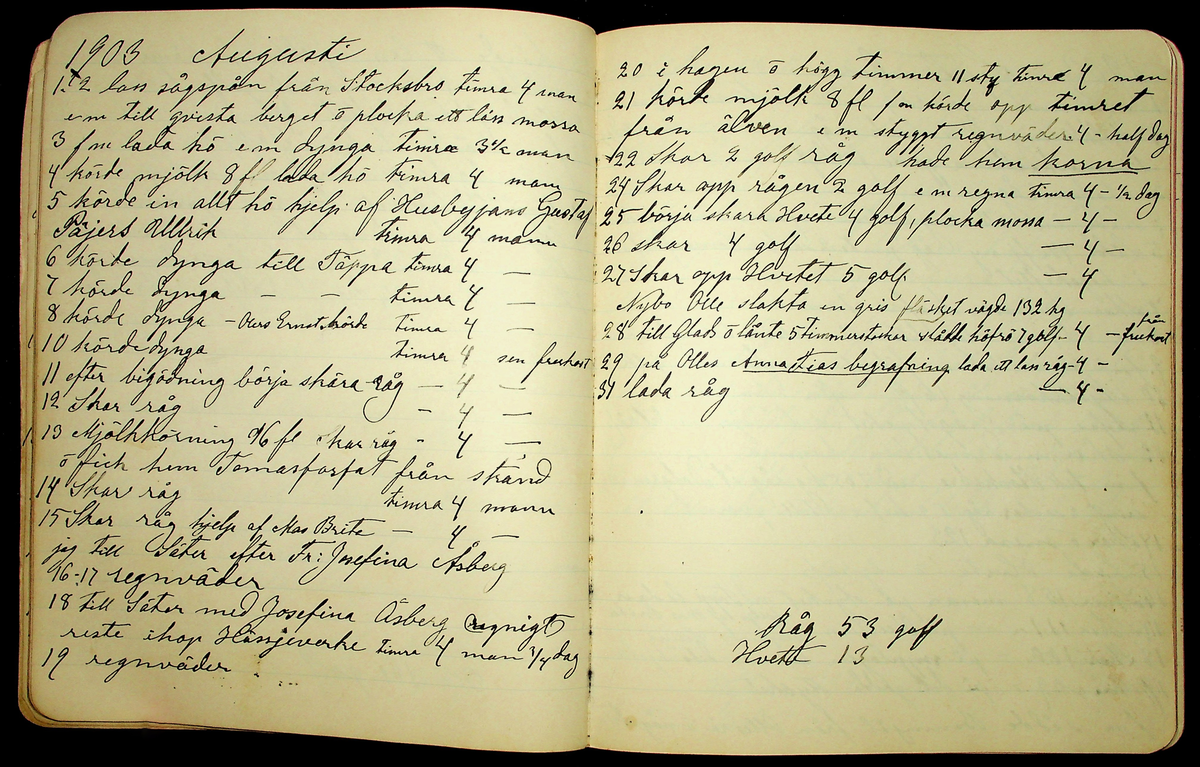 1903 Augusti
1.2 lass sågspån från Stocksbro timra 4 man
e m till gvista berget o plocka ett lass mossa
3 f m lada hö e m dynga timra 3½ man
4 körde mjölk 8 fl lada hö timra 4 man
5 körde in allt hö hjelp af Husbyjans Gustaf
Päjers Ullrik timra 4 mann
6 körde dynga till Täppa timra 4 —
7 körde dynga — — timra 4 —
8 körde dynga – Ernst körde timra 4 —
10 körde dynga timra 4 sen frukost
11 efter bigödning börja skära råg — 4 —
12 Skar råg - 4 —
13 Mjölkkörning fl skar råg - 4 —
o fick hem Tomasfosfat från strand
14 Skar råg timra 4 mann
15 Skar råg hjelp af Mas Brita — 4 —
jag till Säter efter Fr: Josefina Åsberg
16-17 regnväder
18 till Säter med Josefina Åsberg regnigt
reste ihop Hässjevirke timra 4 man ¼ dag
19 regnväder
20 i hagen o högg timmer 11 sty timra 4 man
21 körde mjölk 8 fl f m körde opp timret
från älven e m styggt regnväder 4 - half dag
22 Skar 2 golf råg hade hem korna
24 Skar opp rågen 2 golf e m regna timra 4 – ½ dag
25 börja skara Hvete 4 golf, plocka mossa — 4 –
26 skar 4 golf — 4 —
27 Skar opp Hvetet 5 golf — 4
Nybo Olle slakta en gris fläsket vägde 132 kg
28 till Glads o lånte 5 timmerstocker slådde höfrö 7 golf – 4 – från frukost
29 på Olles Annastias begrafning lada ett lass råg - 4 –
31 lada råg — 4 –
Råg 53 golf
Hvett 13